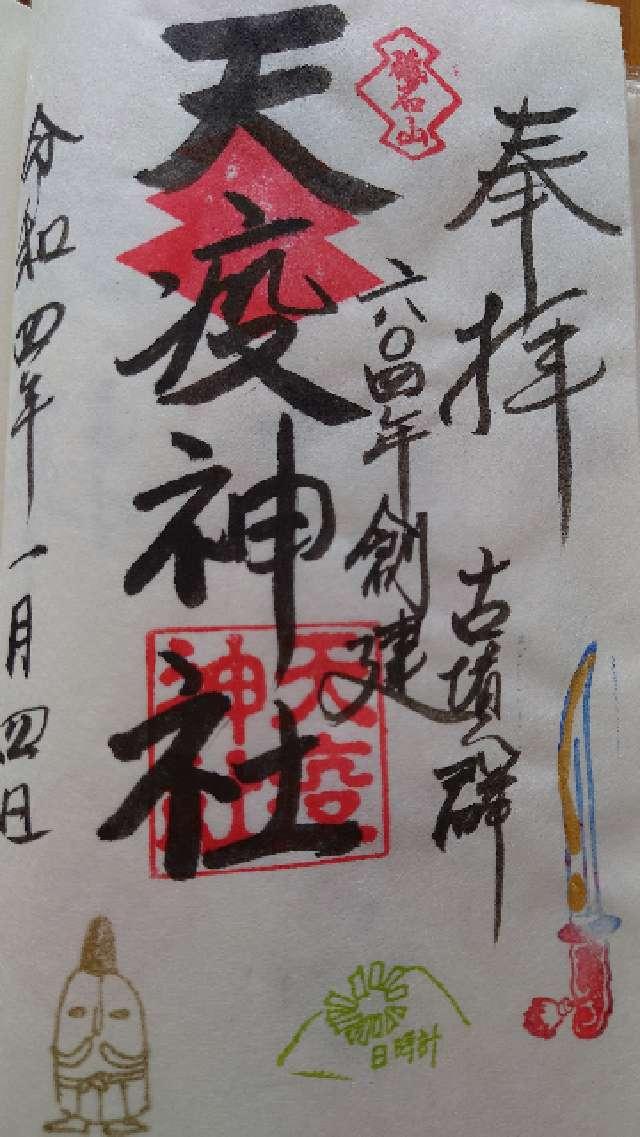 奉拝
古墳群
六〇四年創建
天疫神社
天疫
神社
令和四年一月四日
日時計